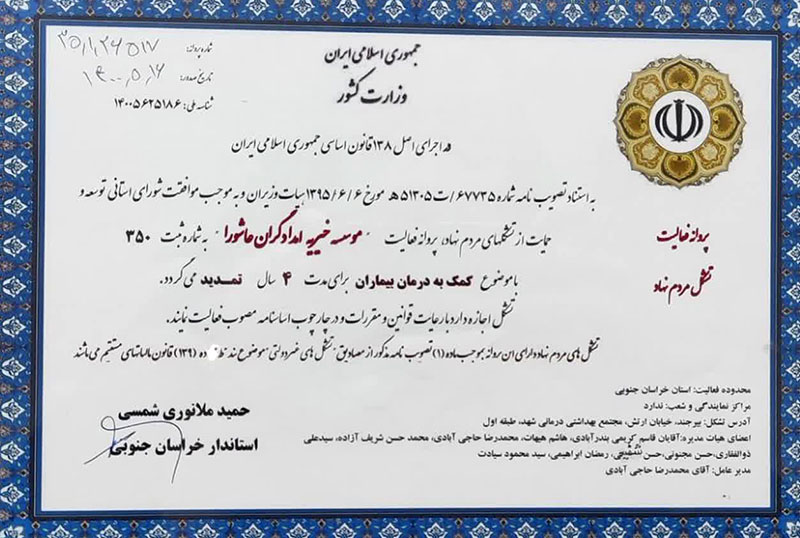 جمهوری اسلامی ایران
وزارت کشور
شماره پروانه:
تاریخ صدور: ۱۴۰۰,۵,۱۶
شناسه ملی: ۱۴۰۰۵۶۲۵۱۸۶
در اجرای اصل ۱۳۸ قانون اساسی جمهوری اسلامی ایران
پروانه فعالیت
تشکل مردم نهاد
به استناد تصویب نامه شماره ۶۷۷۳۵/ت۵۱۳۰۵هـ مورخ ۱۳۹۵/۶/۶ هیات وزیران و به موجب موافقت شورای استانی توسعه و
حمایت از تشکلهای مردم نهاد، پروانه فعالیت "موسسه خیریه امدادگران عاشورا" به شماره ثبت ۳۵۰
با موضوع کمک به درمان بیماران برای مدت ۴ سال تمدید می گردد.
تشکل اجازه دارد با رعایت قوانین و مقررات و در چارچوب اساسنامه مصوب فعالیت نمایند.
تشکل های مردم نهاد دارای این پروانه بموجب ماده (۱) تصویب نامه مذکور از مصادیق "تشکل های غیردولتی" موضوع ده (۱۳۹) قانون مالیاتهای مستقیم می باشند
محدوده فعالیت: استان خراسان جنوبی
مراکز نمایندگی و شعب: ندارد
آدرس تشکل: بیرجند، خیابان ارتش، مجتمع بهداشتی درمانی شهد، طبقه اول
اعضای هیات مدیره: آقایان قاسم کریمی بندرآبادی، هاشم هیهات، محمدرضا حاجی آبادی، محمد حسن شریف آزاده، سیدعلی
ذوالفقاری، حسن مجنونی، حسن رمضان ابراهیمی، سید محمود سیادت
مدیر عامل: آقای محمدرضا حاجی آبادی
حمید ملانوری شمسی
استاندار خراسان جنوبی